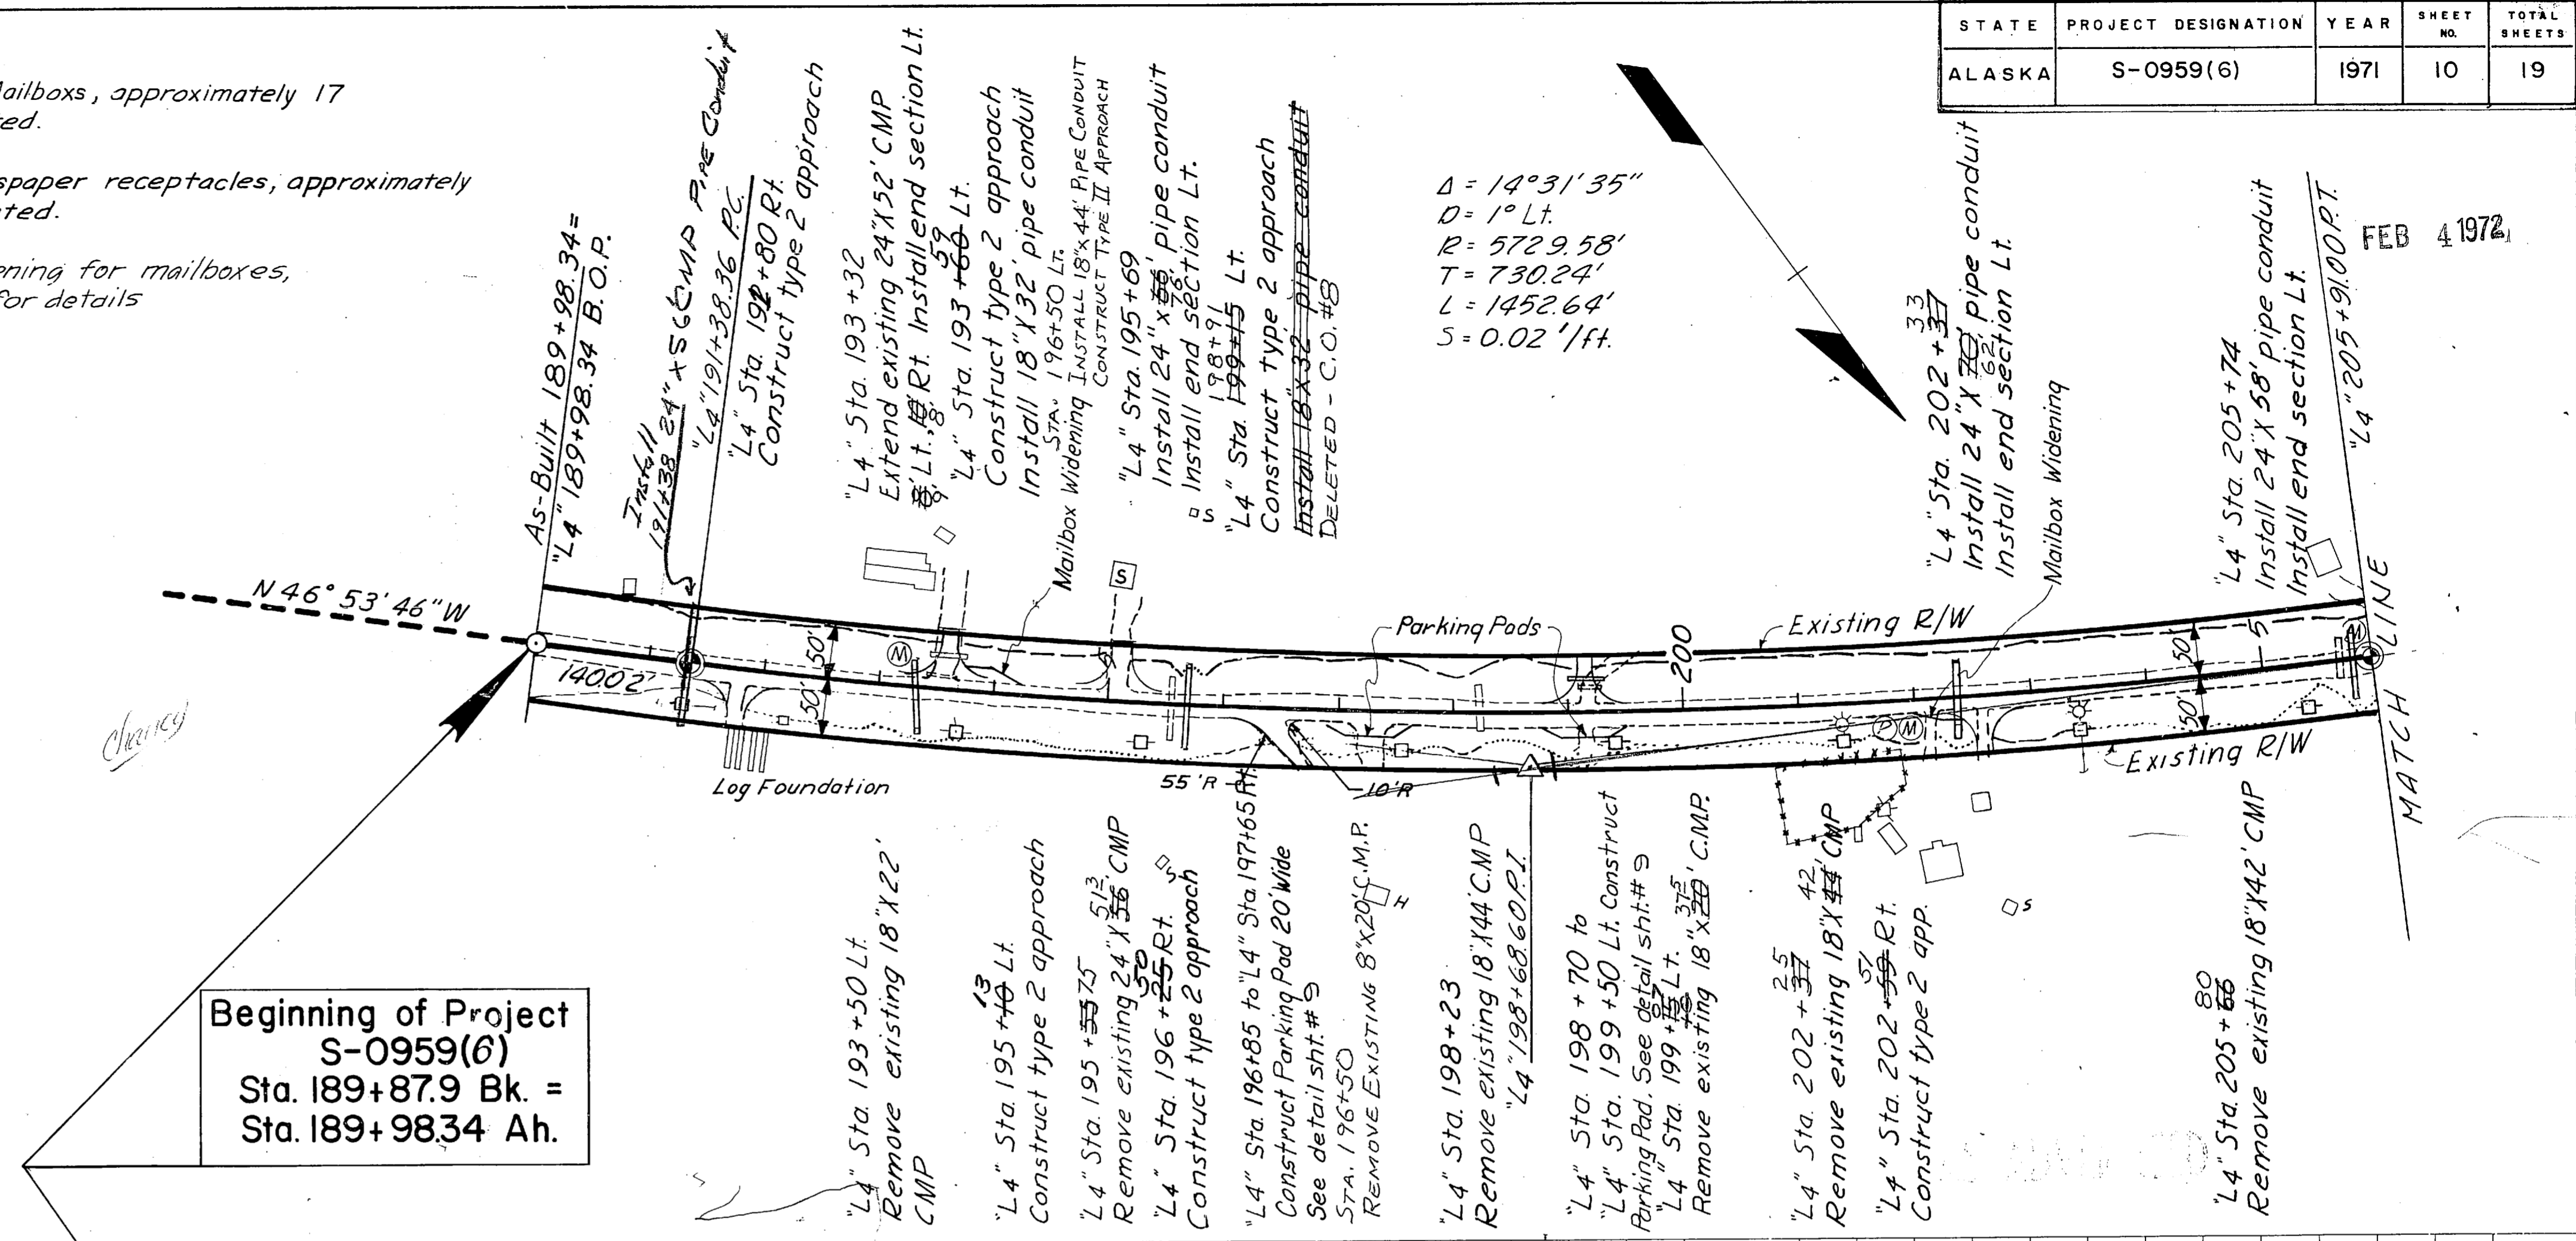 STATE PROJECT DESIGNATION YEAR SHEET NO. TOTAL SHEETS
ALASKA S-0959(6) 1971 10 19
ailboxs, approximately 17
ed.
spaper receptacles, approximately
ted.
ening for mailboxes,
for details
As-Built 189+98.34=
"L4" 189+98.34 B.O.P.
Install
191+38 24" x 56' CMP PIPE Conduit
"L4" 191+38.36 P.C.
"L4" Sta. 192+80 Rt.
Construct type 2 approach
"L4" Sta. 193+32
Extend existing 24"X52' CMP
9' Lt., 8' Rt. Install end section Lt.
59
"L4" Sta. 193+60 Lt.
Construct type 2 approach
Install 18"X32' pipe conduit
STA. 196+50 LT.
Mailbox Widening INSTALL 18"x44' PIPE CONDUIT
CONSTRUCT TYPE II APPROACH
"L4" Sta. 195+69
Install 24" x 76' pipe conduit
Install end section Lt.
198+91
"L4" Sta. 199+15 Lt.
Construct type 2 approach
Install 18"X32' pipe conduit
DELETED - C.O.#8
Δ = 14°31'35"
D = 1° Lt.
R = 5729.58'
T = 730.24'
L = 1452.64'
S = 0.02 '/ft.
33
"L4" Sta. 202+37
Install 24" X 70' pipe conduit
62'
Install end section Lt.
Mailbox Widening
"L4" Sta. 205+74
Install 24"X 58' pipe conduit
Install end section Lt.
"L4" 205+91.00 P.T.
FEB 4 1972
MATCH LINE
N 46° 53' 46" W
14002'
50'
50'
M
S
S
Parking Pads
200
Existing R/W
50'
50'
5
M
P
M
Existing R/W
Log Foundation
55'R
10'R
Beginning of Project
S-0959(6)
Sta. 189+87.9 Bk. =
Sta. 189+98.34 Ah.
"L4" Sta. 193+50 Lt.
Remove existing 18"X22'
CMP
13
"L4" Sta. 195+10 Lt.
Construct type 2 approach
"L4" Sta. 195+55 75
51.3
Remove existing 24"X56' CMP
50
"L4" Sta. 196+25 Rt.
Construct type 2 approach
S
"L4" Sta. 196+85 to "L4" Sta. 197+65 Rt.
Construct Parking Pad 20' Wide
See detail sht.#9
STA. 196+50
REMOVE EXISTING 8"x20' C.M.P.
H
"L4" Sta. 198+23
Remove existing 18"X44' C.M.P
"L4" 198+68.60 P.I.
"L4" Sta. 198+70 to
"L4" Sta. 199+50 Lt. Construct
Parking Pad. See detail sht.#9
"L4" Sta. 199+15 Lt.
37.5
Remove existing 18"x20' C.M.P.
25
"L4" Sta. 202+37
42
Remove existing 18"X44' CMP
51
"L4" Sta. 202+59 Rt.
Construct type 2 app.
S
80
"L4" Sta. 205+66
Remove existing 18"X42' CMP